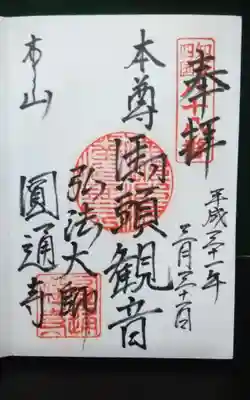 奉拝
平成三十一年
三月三十一日
本尊
馬頭観音
弘法大師
本山
圓通寺